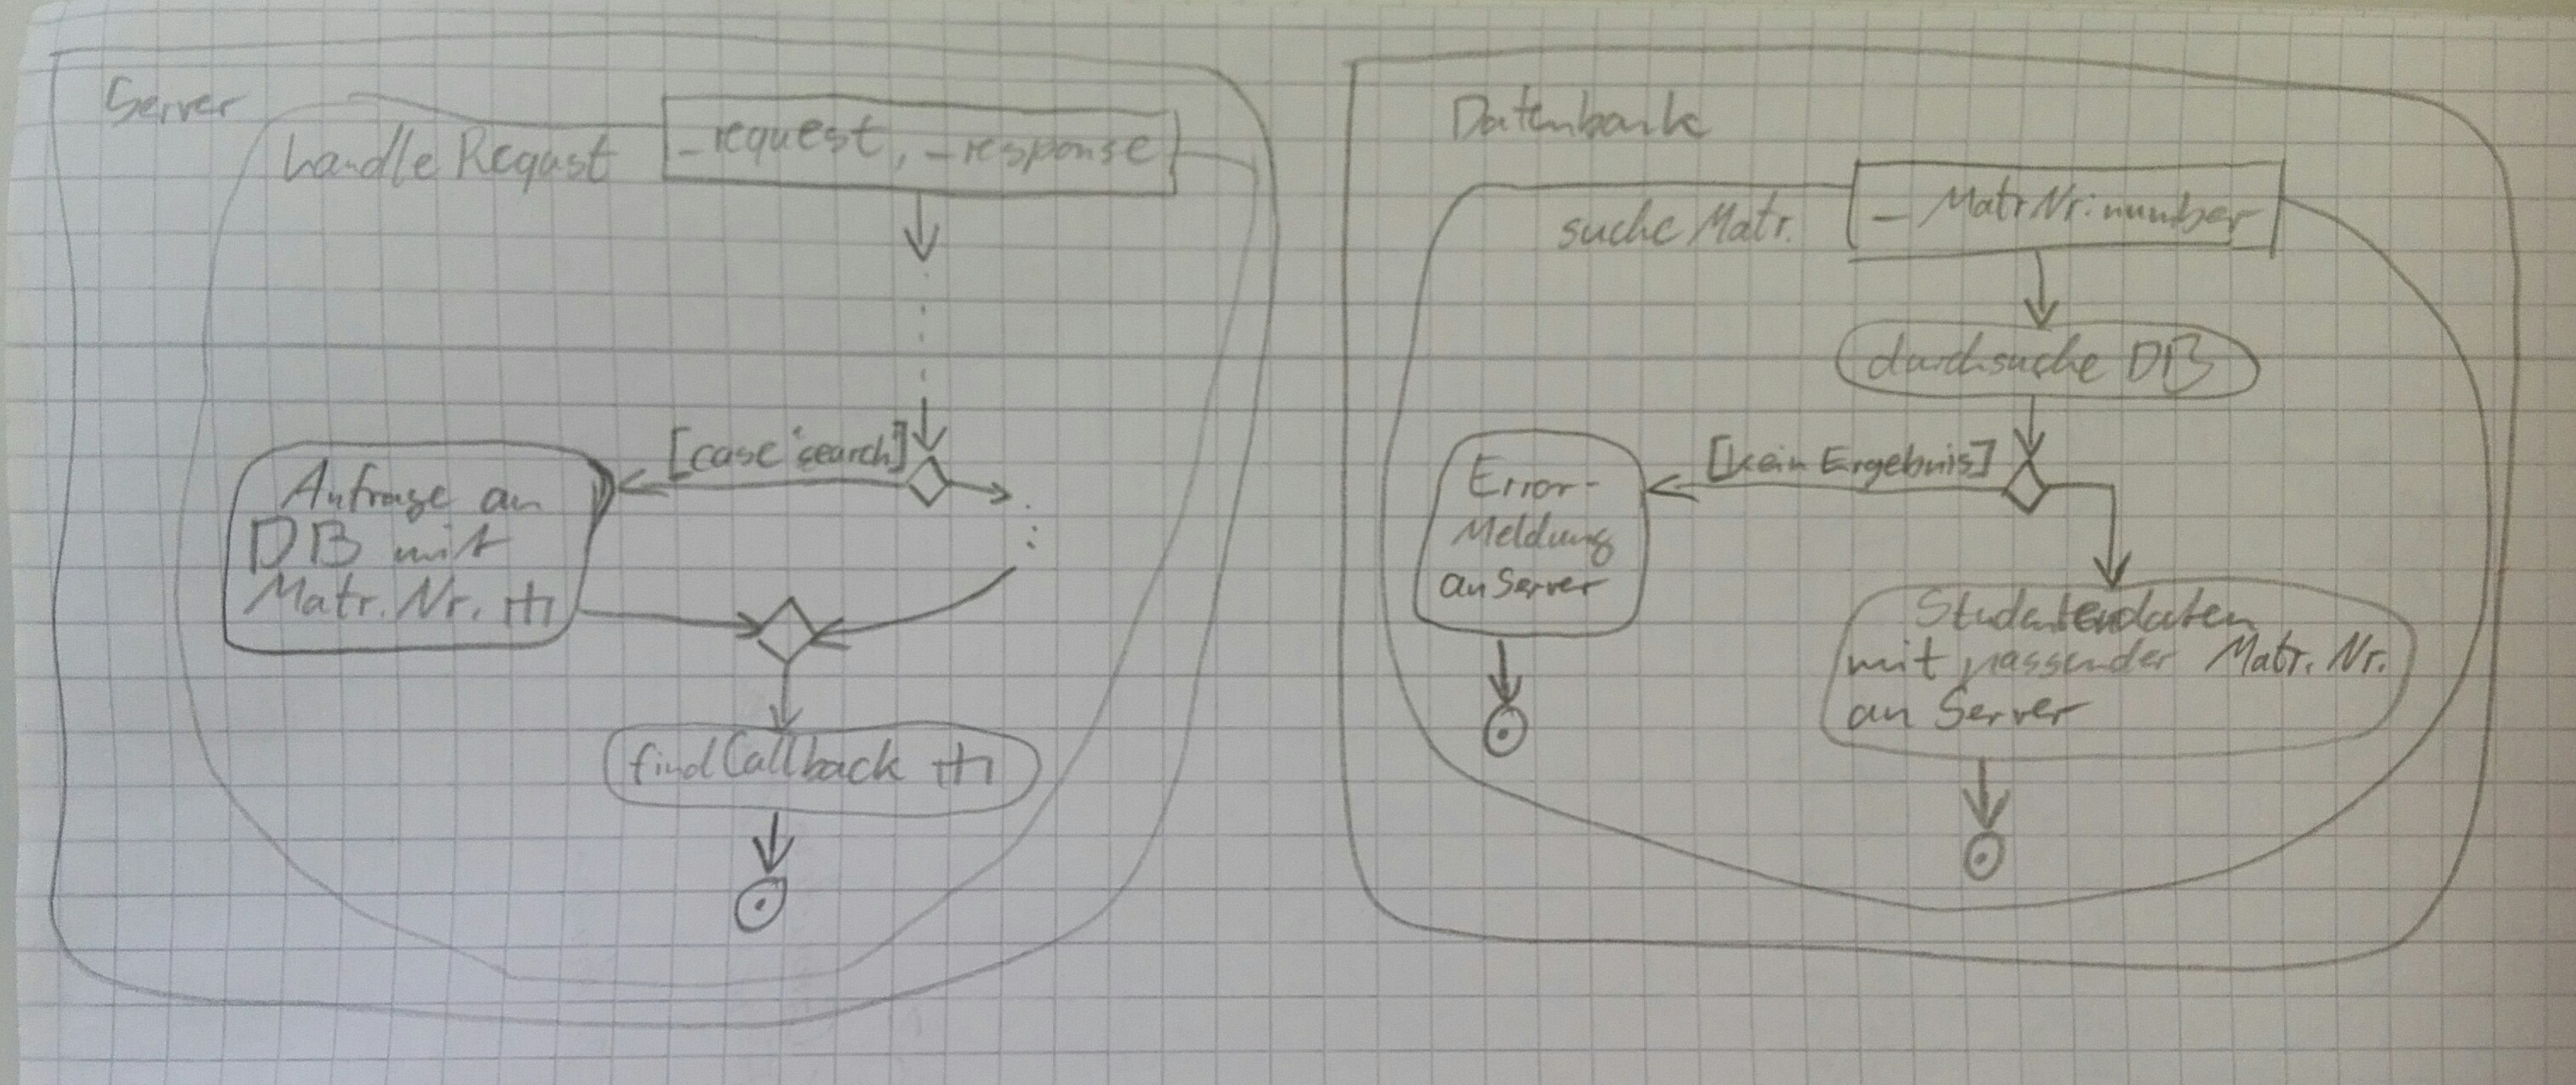 Server
handleReqast
_request, _response
[case 'search]
Anfrage an
DB mit
Matr. Nr.
findCallback
Datenbank
suche Matr.
_ MatrNr: number
durchsuche DB
[kein Ergebnis]
Error-
Meldung
an Server
Studentendaten
mit passender Matr. Nr.
an Server